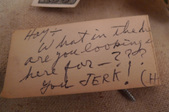 Hay-
What in the h
are you looking
here for - ???
you JERK! (H